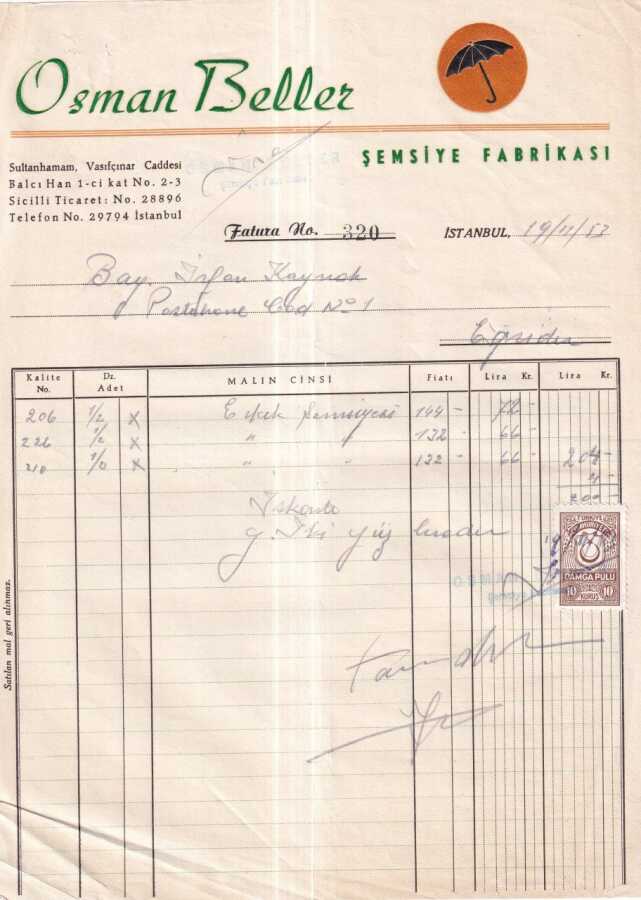 Osman Beller
ŞEMSİYE FABRİKASI
Sultanhamam, Vasıfçınar Caddesi
Balcı Han 1-ci kat No. 2-3
Sicilli Ticaret: No. 28896
Telefon No. 29794 İstanbul
Fatura No. 320
İSTANBUL, 19/11/53
Bay. İrfan Kaynak
Postahane Cad No 1
Eğridir
Kalite No. Dz. Adet MALIN CİNSİ Fiatı Lira Kr. Lira Kr.
206 1/2 X Erkek Şemsiyesi 144 - 72 -
226 1/2 X " " 132 - 66 -
210 1/2 X " " 132 - 66 - 204 -
4 -
200 -
İskonto
y. İki yüz liradır
TÜRKİYE CUMHURİYETİ
DAMGA PULU
10 KURUŞ 10
Satılan mal geri alınmaz.